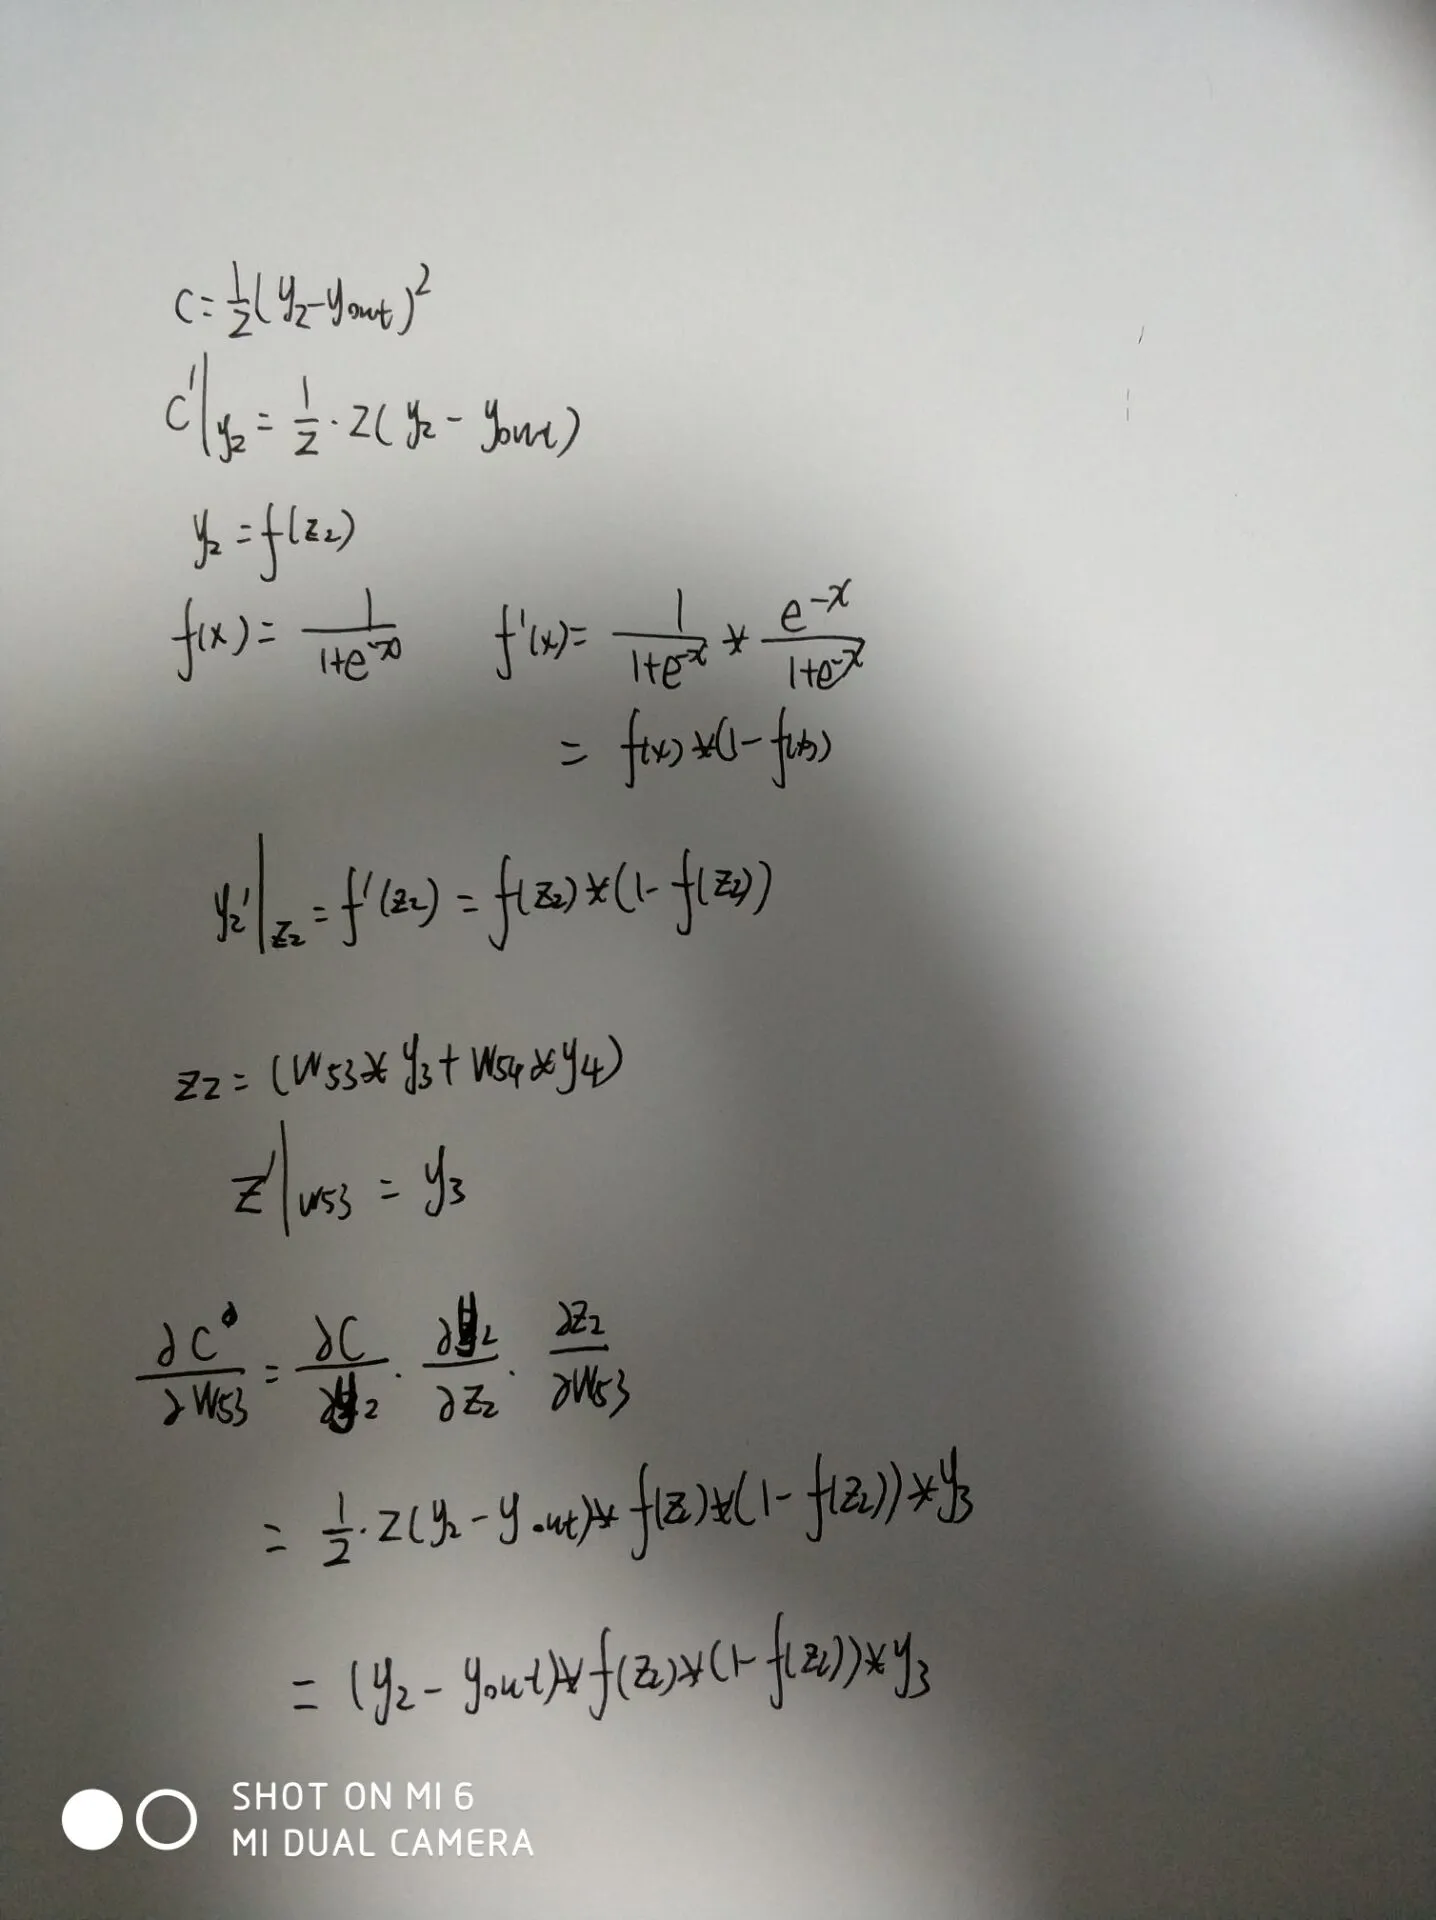 C = 1/2 (y₂ - yout)²
C'|y₂ = 1/2 · 2(y₂ - yout)
y₂ = f(z₂)
f(x) = 1/(1+e^-x) f'(x) = 1/(1+e^-x) * e^-x/(1+e^-x)
= f(x) * (1 - f(x))
y₂'|z₂ = f'(z₂) = f(z₂) * (1 - f(z₂))
z₂ = (W53 * y₃ + W54 * y₄)
z'|W53 = y₃
∂C/∂W53 = ∂C/∂y₂ · ∂y₂/∂z₂ · ∂z₂/∂W53
= 1/2 · 2(y₂ - yout) * f(z₂) * (1 - f(z₂)) * y₃
= (y₂ - yout) * f(z₂) * (1 - f(z₂)) * y₃
SHOT ON MI 6
MI DUAL CAMERA